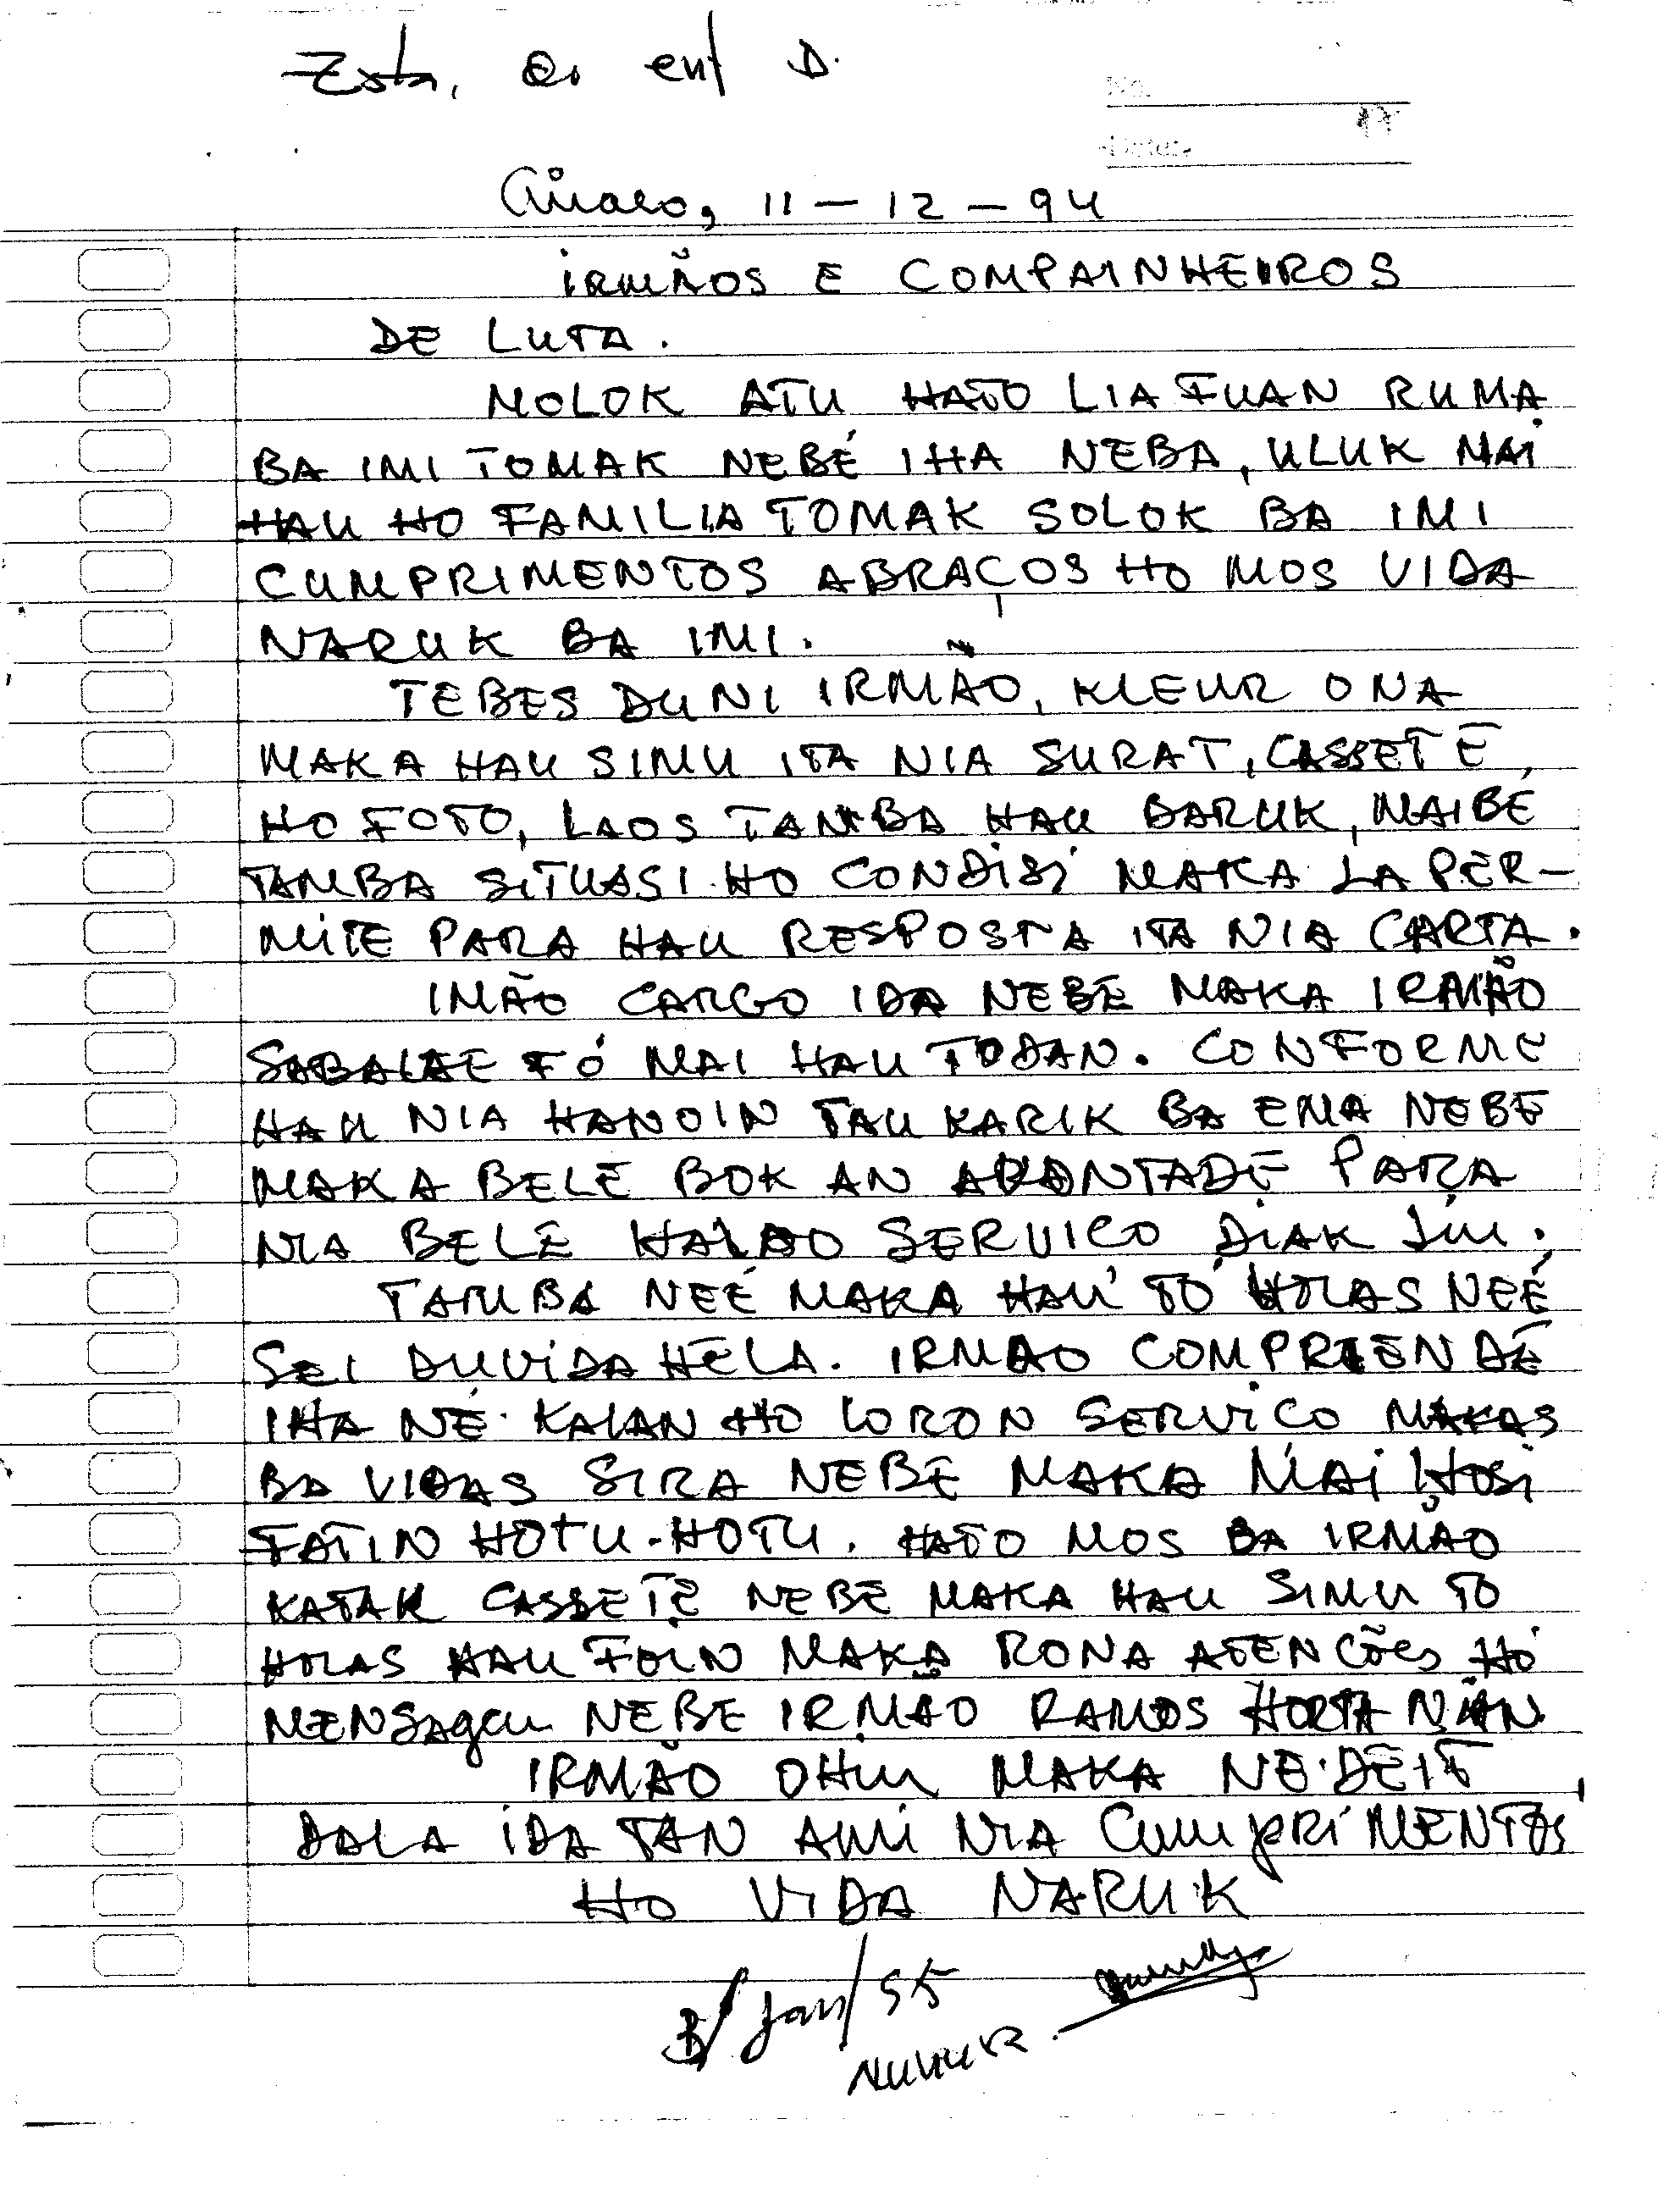 No.
Date:
11 - 12 - 94
IRMÃOS E COMPAINHEIROS
DE LUTA.
MOLOK ATU HATO LIA FUAN RUMA
BA IMI TOMAK NEBÉ IHA NEBA, ULUK MAI
HAU HO FAMILIA TOMAK SOLOK BA IMI
CUMPRIMENTOS ABRAÇOS HO MOS VIDA
NARUK BA IMI.
TEBES DUNI IRMÃO, KLEUR ONA
MAKA HAU SIMU ITA NIA SURAT, CASSETE,
HO FOTO, LAOS TAMBA HAU BARUK, MAIBE
TAMBA SITUASI HO CONDISI MAKA LA PER-
MITE PARA HAU RESPOSTA ITA NIA CARTA.
IMÃO CARGO IDA NEBE MAKA IRMÃO
SABALAE FÓ MAI HAU TODAN. CONFORME
HAU NIA HANOIN TAU KARIK BA EMA NEBE
MAKA BELE BOK AN AVONTADE PARA
NIA BELE HALAO SERVICO DIAK LIU.
TAMBA NEE MAKA HAU TO HORAS NEÉ
SEI DUVIDA HELA. IRMAO COMPREENDE
IHA NE KALAN HO LORON SERVICO MAKAS
BA VIDAS SIRA NEBE MAKA MAI HOSI
FATIN HOTU-HOTU. HATO MOS BA IRMAO
KATAK CASSETE NEBE MAKA HAU SIMU TO
HORAS HAU FOIN MAKA RONA ATENCÕES HO
MENSAGEM NEBE IRMÃO RAMOS HORTA NIAN.
IRMÃO OHIN MAKA NE DEIT
DALA IDA TAN AMI NIA CUMPRIMENTOS
HO VIDA NARUK
Jan/95